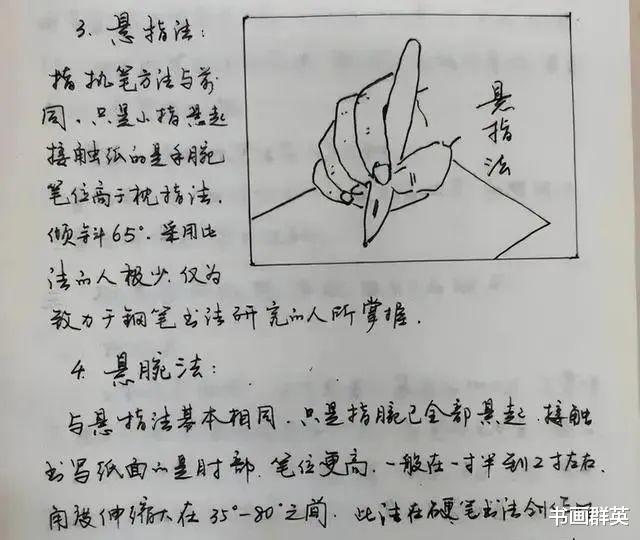 3. 悬指法：
指执笔方法与前
同，只是小指悬起
接触纸的是手腕
笔位高于枕指法，
倾斜65°. 采用此
法的人极少，仅为
致力于钢笔书法研究的人所掌握。
悬指法
4. 悬腕法：
与悬指法基本相同，只是指腕已全部悬起，接触
书写纸面的是肘部，笔位更高，一般在一寸半到2寸左右，
角度伸缩大在35°-80°之间. 此法在硬笔书法创作
书画群英